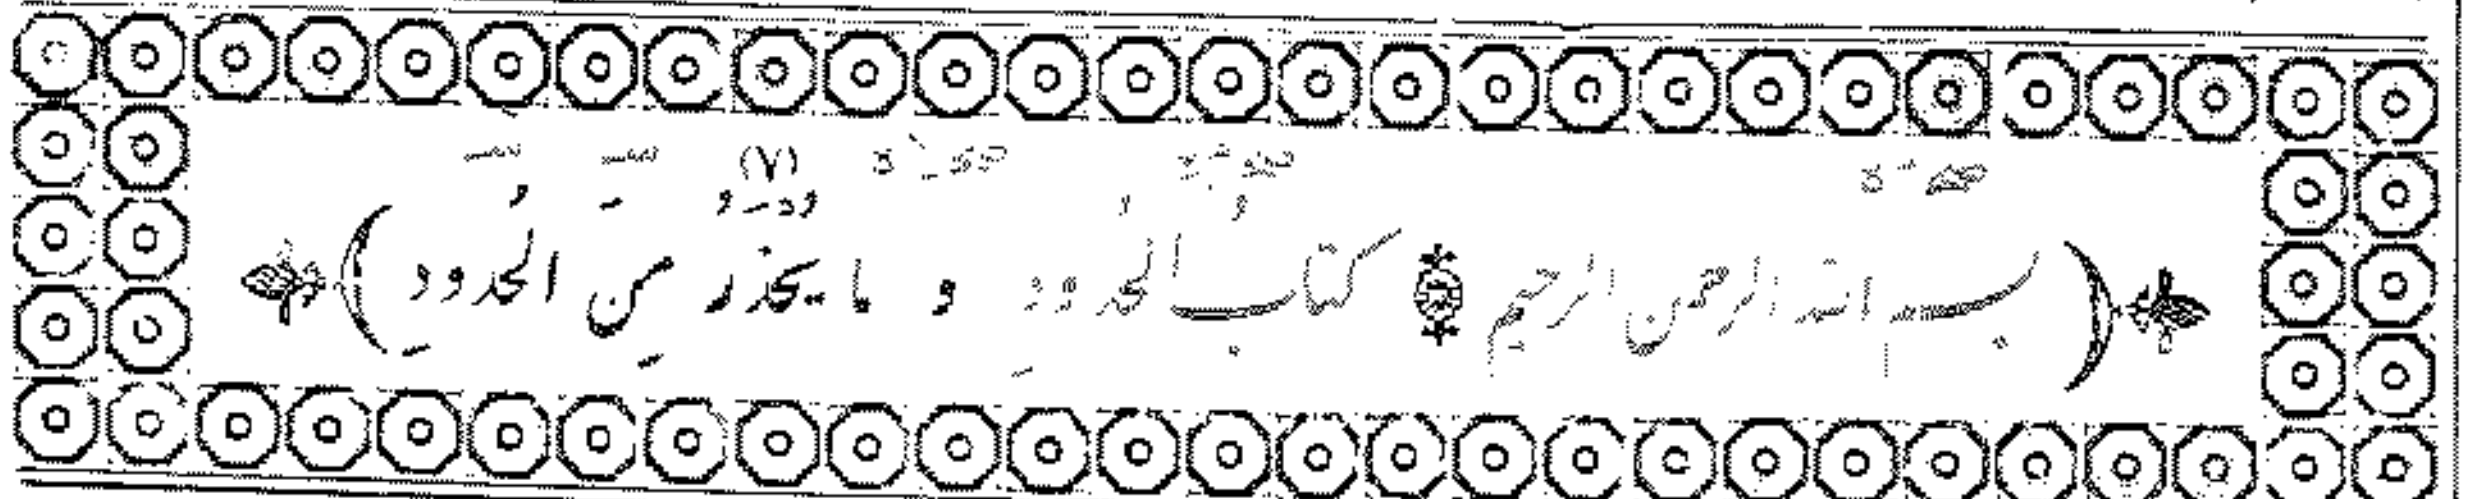 (٧)
( بسم الله الرحمن الرحيم كتابُ الحدودِ و ما يُحْذَرُ مِنَ الحُدودِ )